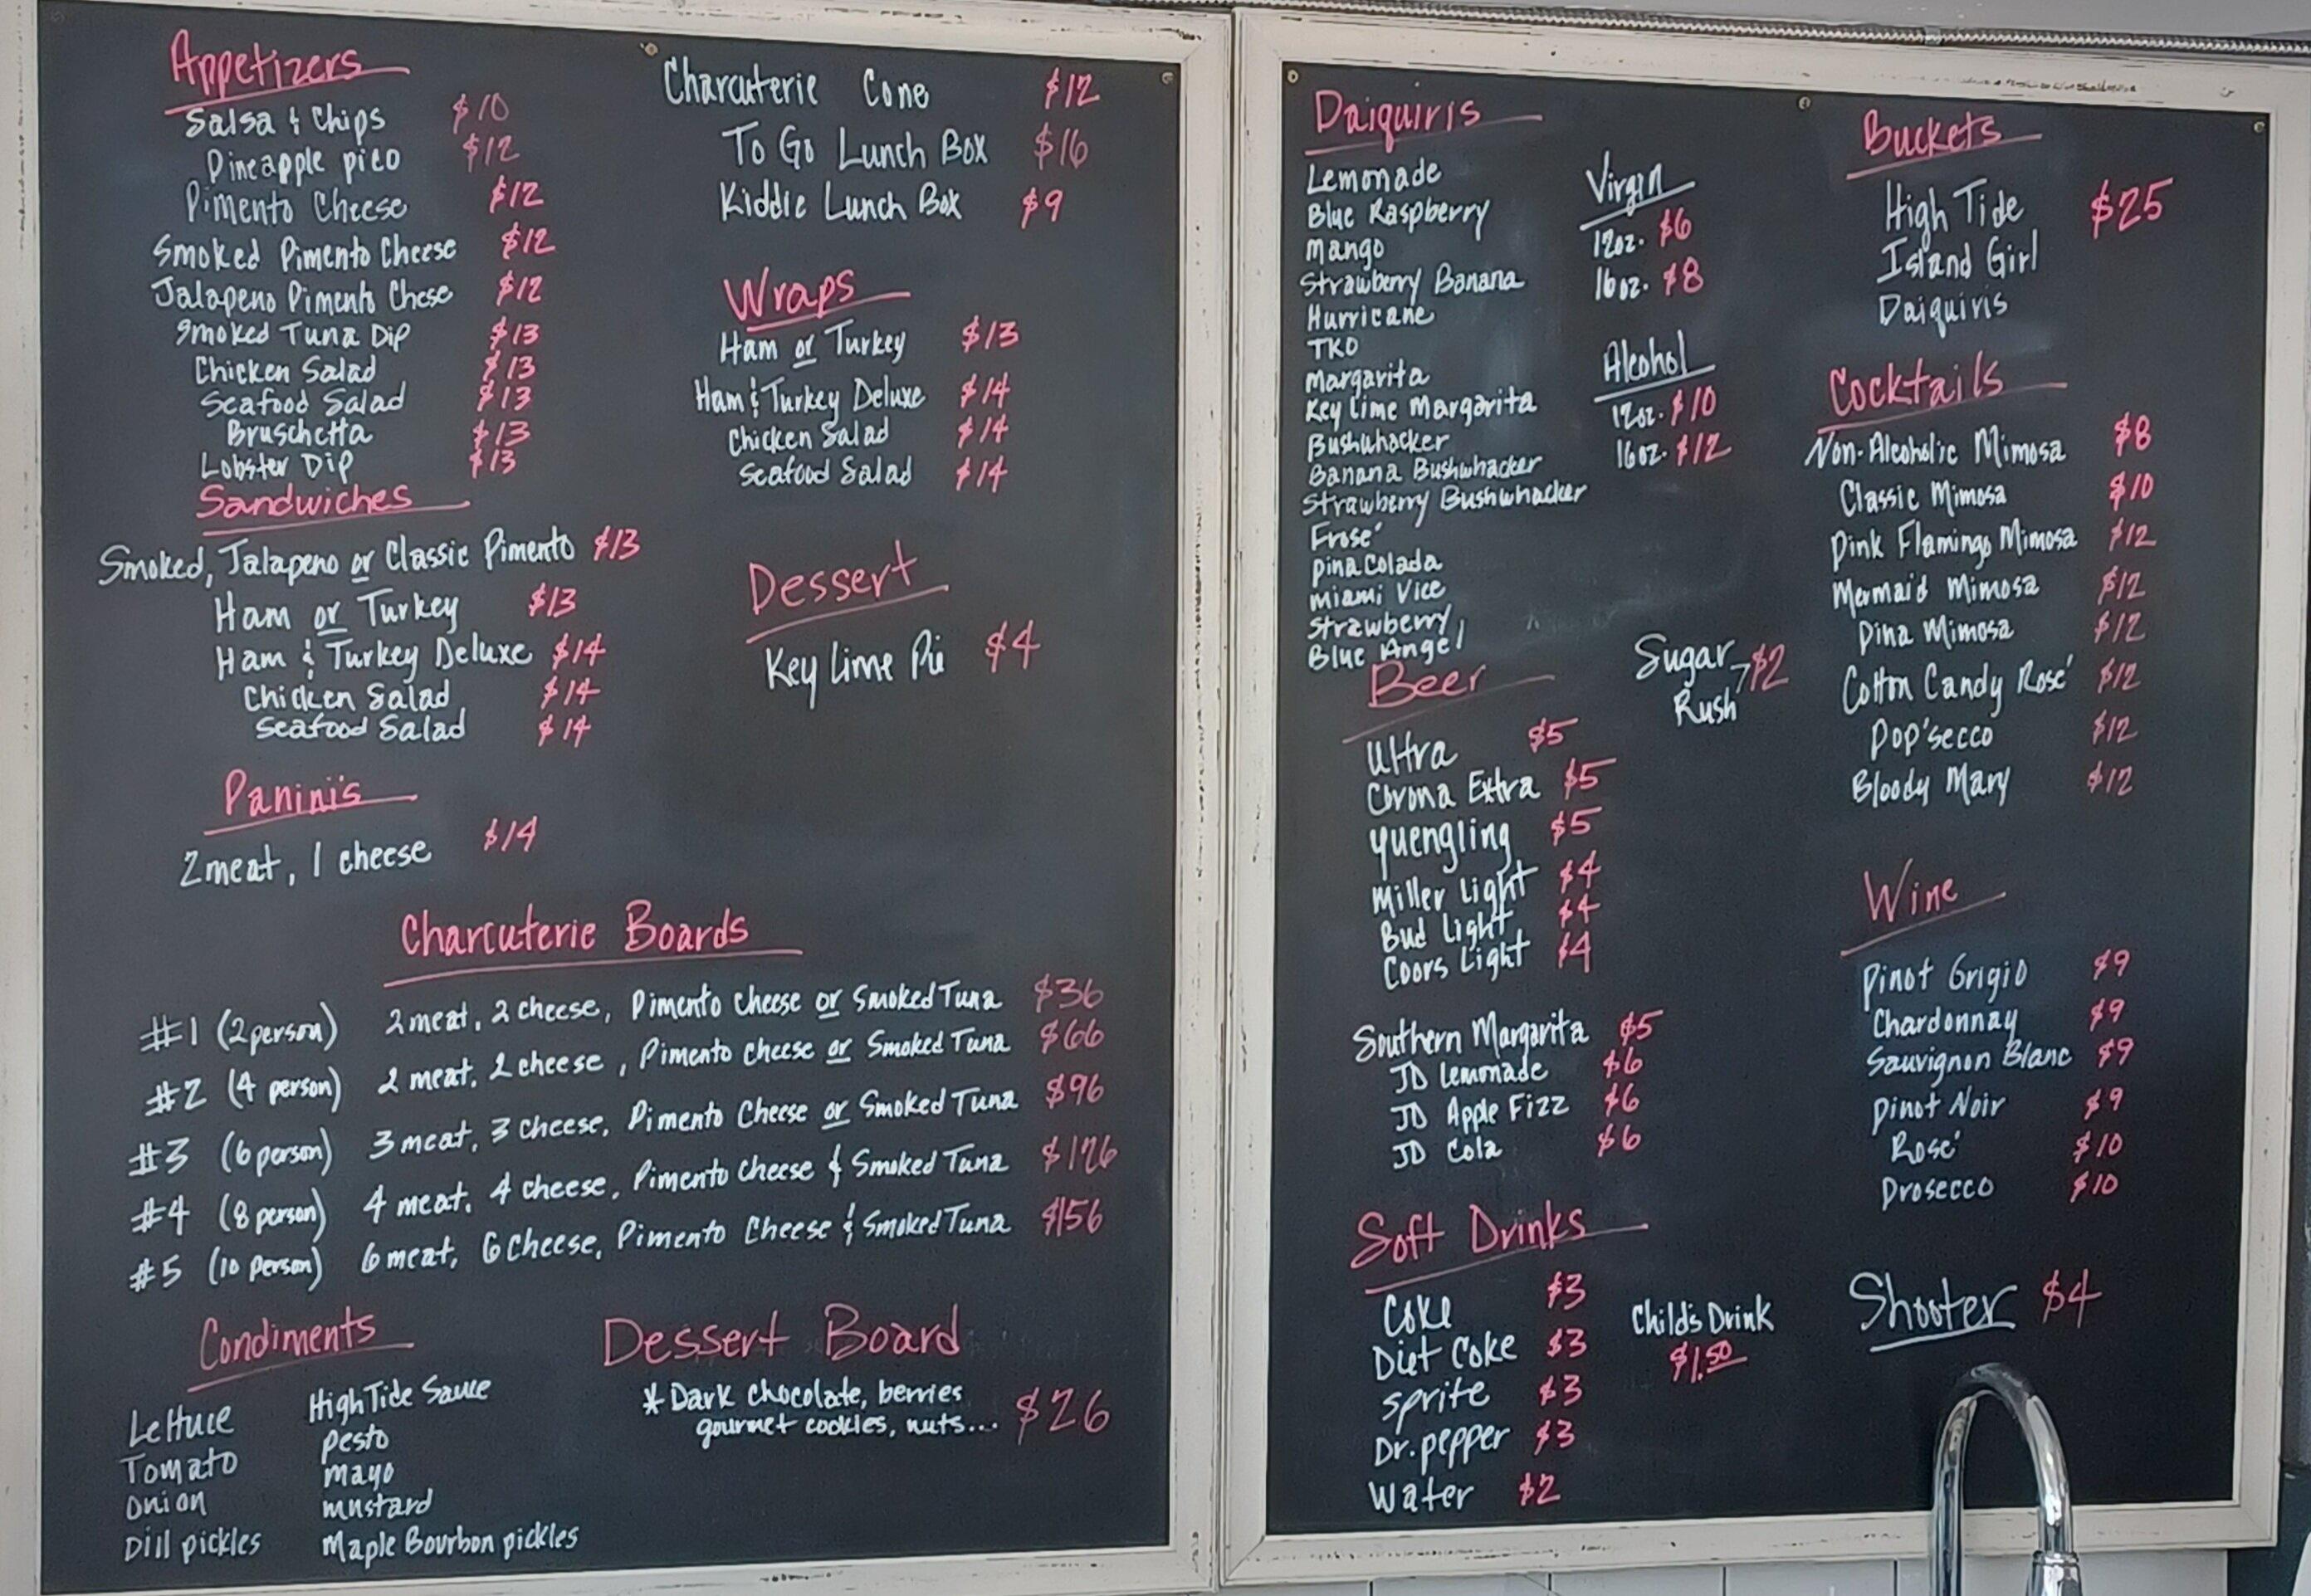 Appetizers
Salsa & Chips $10
Pineapple pico $12
Pimento Cheese $12
Smoked Pimento Cheese $12
Jalapeno Pimento Chese $12
Smoked Tuna Dip $13
Chicken Salad $13
Seafood Salad $13
Bruschetta $13
Lobster Dip $13
Sandwiches
Smoked, Jalapeno or Classic Pimento $13
Ham or Turkey $13
Ham & Turkey Deluxe $14
Chicken Salad $14
Seafood Salad $14
Panini's
2 meat, 1 cheese $14
Charcuterie Cone $12
To Go Lunch Box $16
Kiddie Lunch Box $9
Wraps
Ham or Turkey $13
Ham & Turkey Deluxe $14
Chicken Salad $14
Seafood Salad $14
Dessert
Key Lime Pie $4
Charcuterie Boards
#1 (2 person) 2 meat, 2 cheese, Pimento cheese or Smoked Tuna $36
#2 (4 person) 2 meat, 2 cheese, Pimento cheese or Smoked Tuna $66
#3 (6 person) 3 meat, 3 cheese, Pimento Cheese or Smoked Tuna $96
#4 (8 person) 4 meat, 4 cheese, Pimento Cheese & Smoked Tuna $126
#5 (10 person) 6 meat, 6 Cheese, Pimento Cheese & Smoked Tuna $156
Condiments
Lettuce
Tomato
Onion
Dill pickles
High Tide Sauce
Pesto
Mayo
Mustard
Maple Bourbon pickles
Dessert Board
* Dark chocolate, berries
gourmet cookies, nuts... $26
Daiquiris
Lemonade
Blue Raspberry
Mango
Strawberry Banana
Hurricane
TKO
Margarita
Key Lime Margarita
Bushwhacker
Banana Bushwhacker
Strawberry Bushwhacker
Frosé
Pina Colada
Miami Vice
Strawberry
Blue Angel
Virgin
12oz. $6
16oz. $8
Alcohol
12oz. $10
16oz. $12
Sugar
Rush $2
Beer
Ultra $5
Corona Extra $5
Yuengling $5
Miller Light $4
Bud Light $4
Coors Light $4
Southern Margarita $5
JD Lemonade $6
JD Apple Fizz $6
JD Cola $6
Soft Drinks
Coke $3
Diet Coke $3
Sprite $3
Dr. pepper $3
Water $2
Child's Drink
$1.50
Buckets
High Tide $25
Island Girl
Daiquiris
Cocktails
Non-Alcoholic Mimosa $8
Classic Mimosa $10
Pink Flamingo Mimosa $12
Mermaid Mimosa $12
Pina Mimosa $12
Cotton Candy Rosé $12
Pop'secco $12
Bloody Mary $12
Wine
Pinot Grigio $9
Chardonnay $9
Sauvignon Blanc $9
Pinot Noir $9
Rosé $10
Prosecco $10
Shooter $4